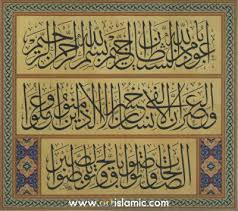 أعوذ بالله من الشيطان الرجيم بسم الله الرحمن الرحيم
والعصر إن الإنسان لفي خسر إلا الذين آمنوا وعملوا
الصالحات وتواصوا بالحق وتواصوا بالصبر
www.artislamic.com